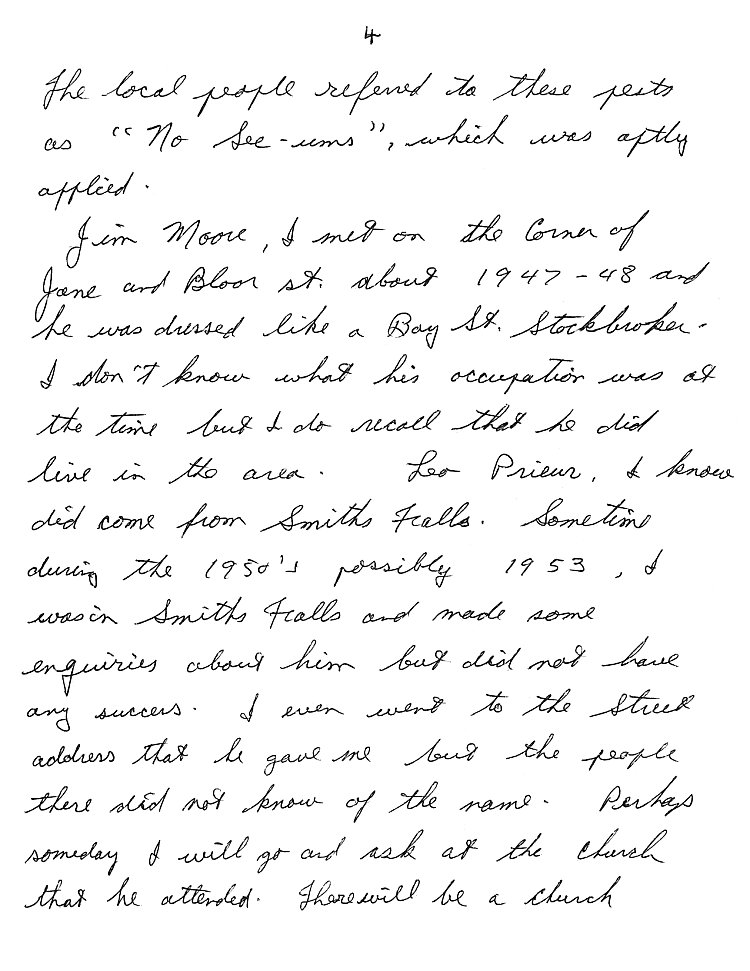 4
The local people referred to these pests
as "No See-ums", which was aptly
applied.
Jim Moore, I met on the Corner of
Jane and Bloor st. about 1947-48 and
he was dressed like a Bay St. Stockbroker.
I don't know what his occupation was at
the time but I do recall that he did
live in the area. Leo Prieur, I know
did come from Smiths Falls. Sometime
during the 1950's possibly 1953, I
was in Smiths Falls and made some
enquiries about him but did not have
any success. I even went to the Street
address that he gave me but the people
there did not know of the name. Perhaps
someday I will go and ask at the church
that he attended. There will be a church